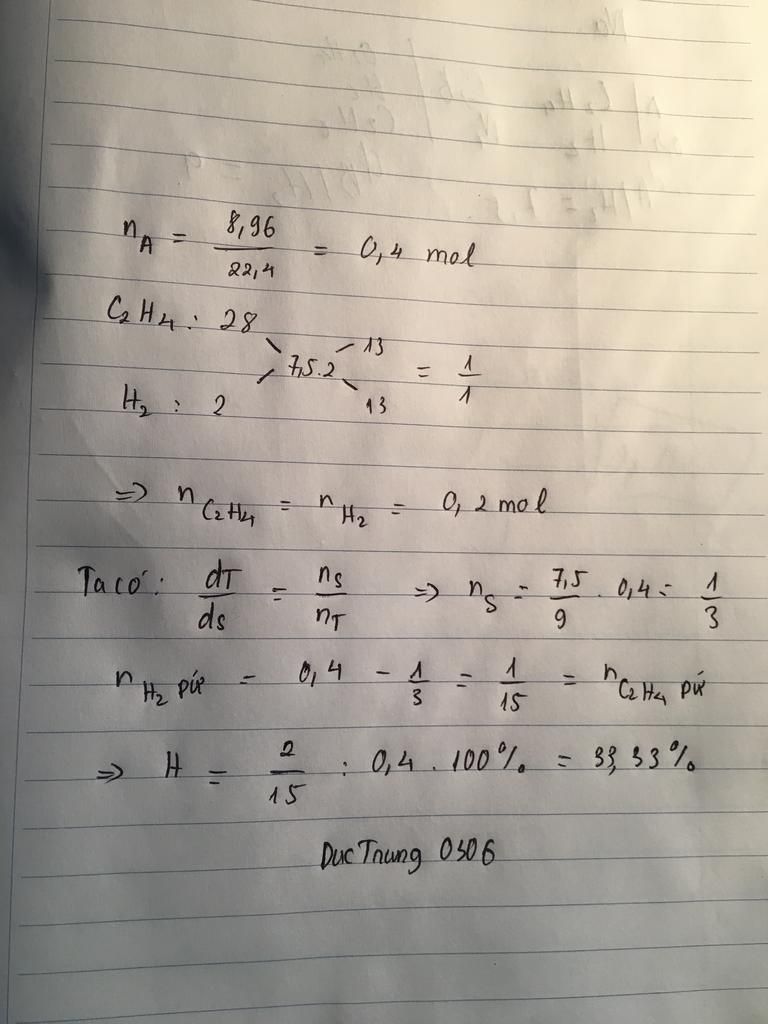 n_A = 8,96/22,4 = 0,4 mol
C₂H₄ : 28 13
7,5.2 = 1/1
H₂ : 2 13
=> n_C₂H₄ = n_H₂ = 0,2 mol
Ta có: dT/ds = ns/nT => ns = 7,5/9 . 0,4 = 1/3
n_H₂ pứ = 0,4 - 1/3 = 1/15 = n_C₂H₄ pứ
=> H = 2/15 : 0,4 . 100% = 33,33%
Duc Trung 0306